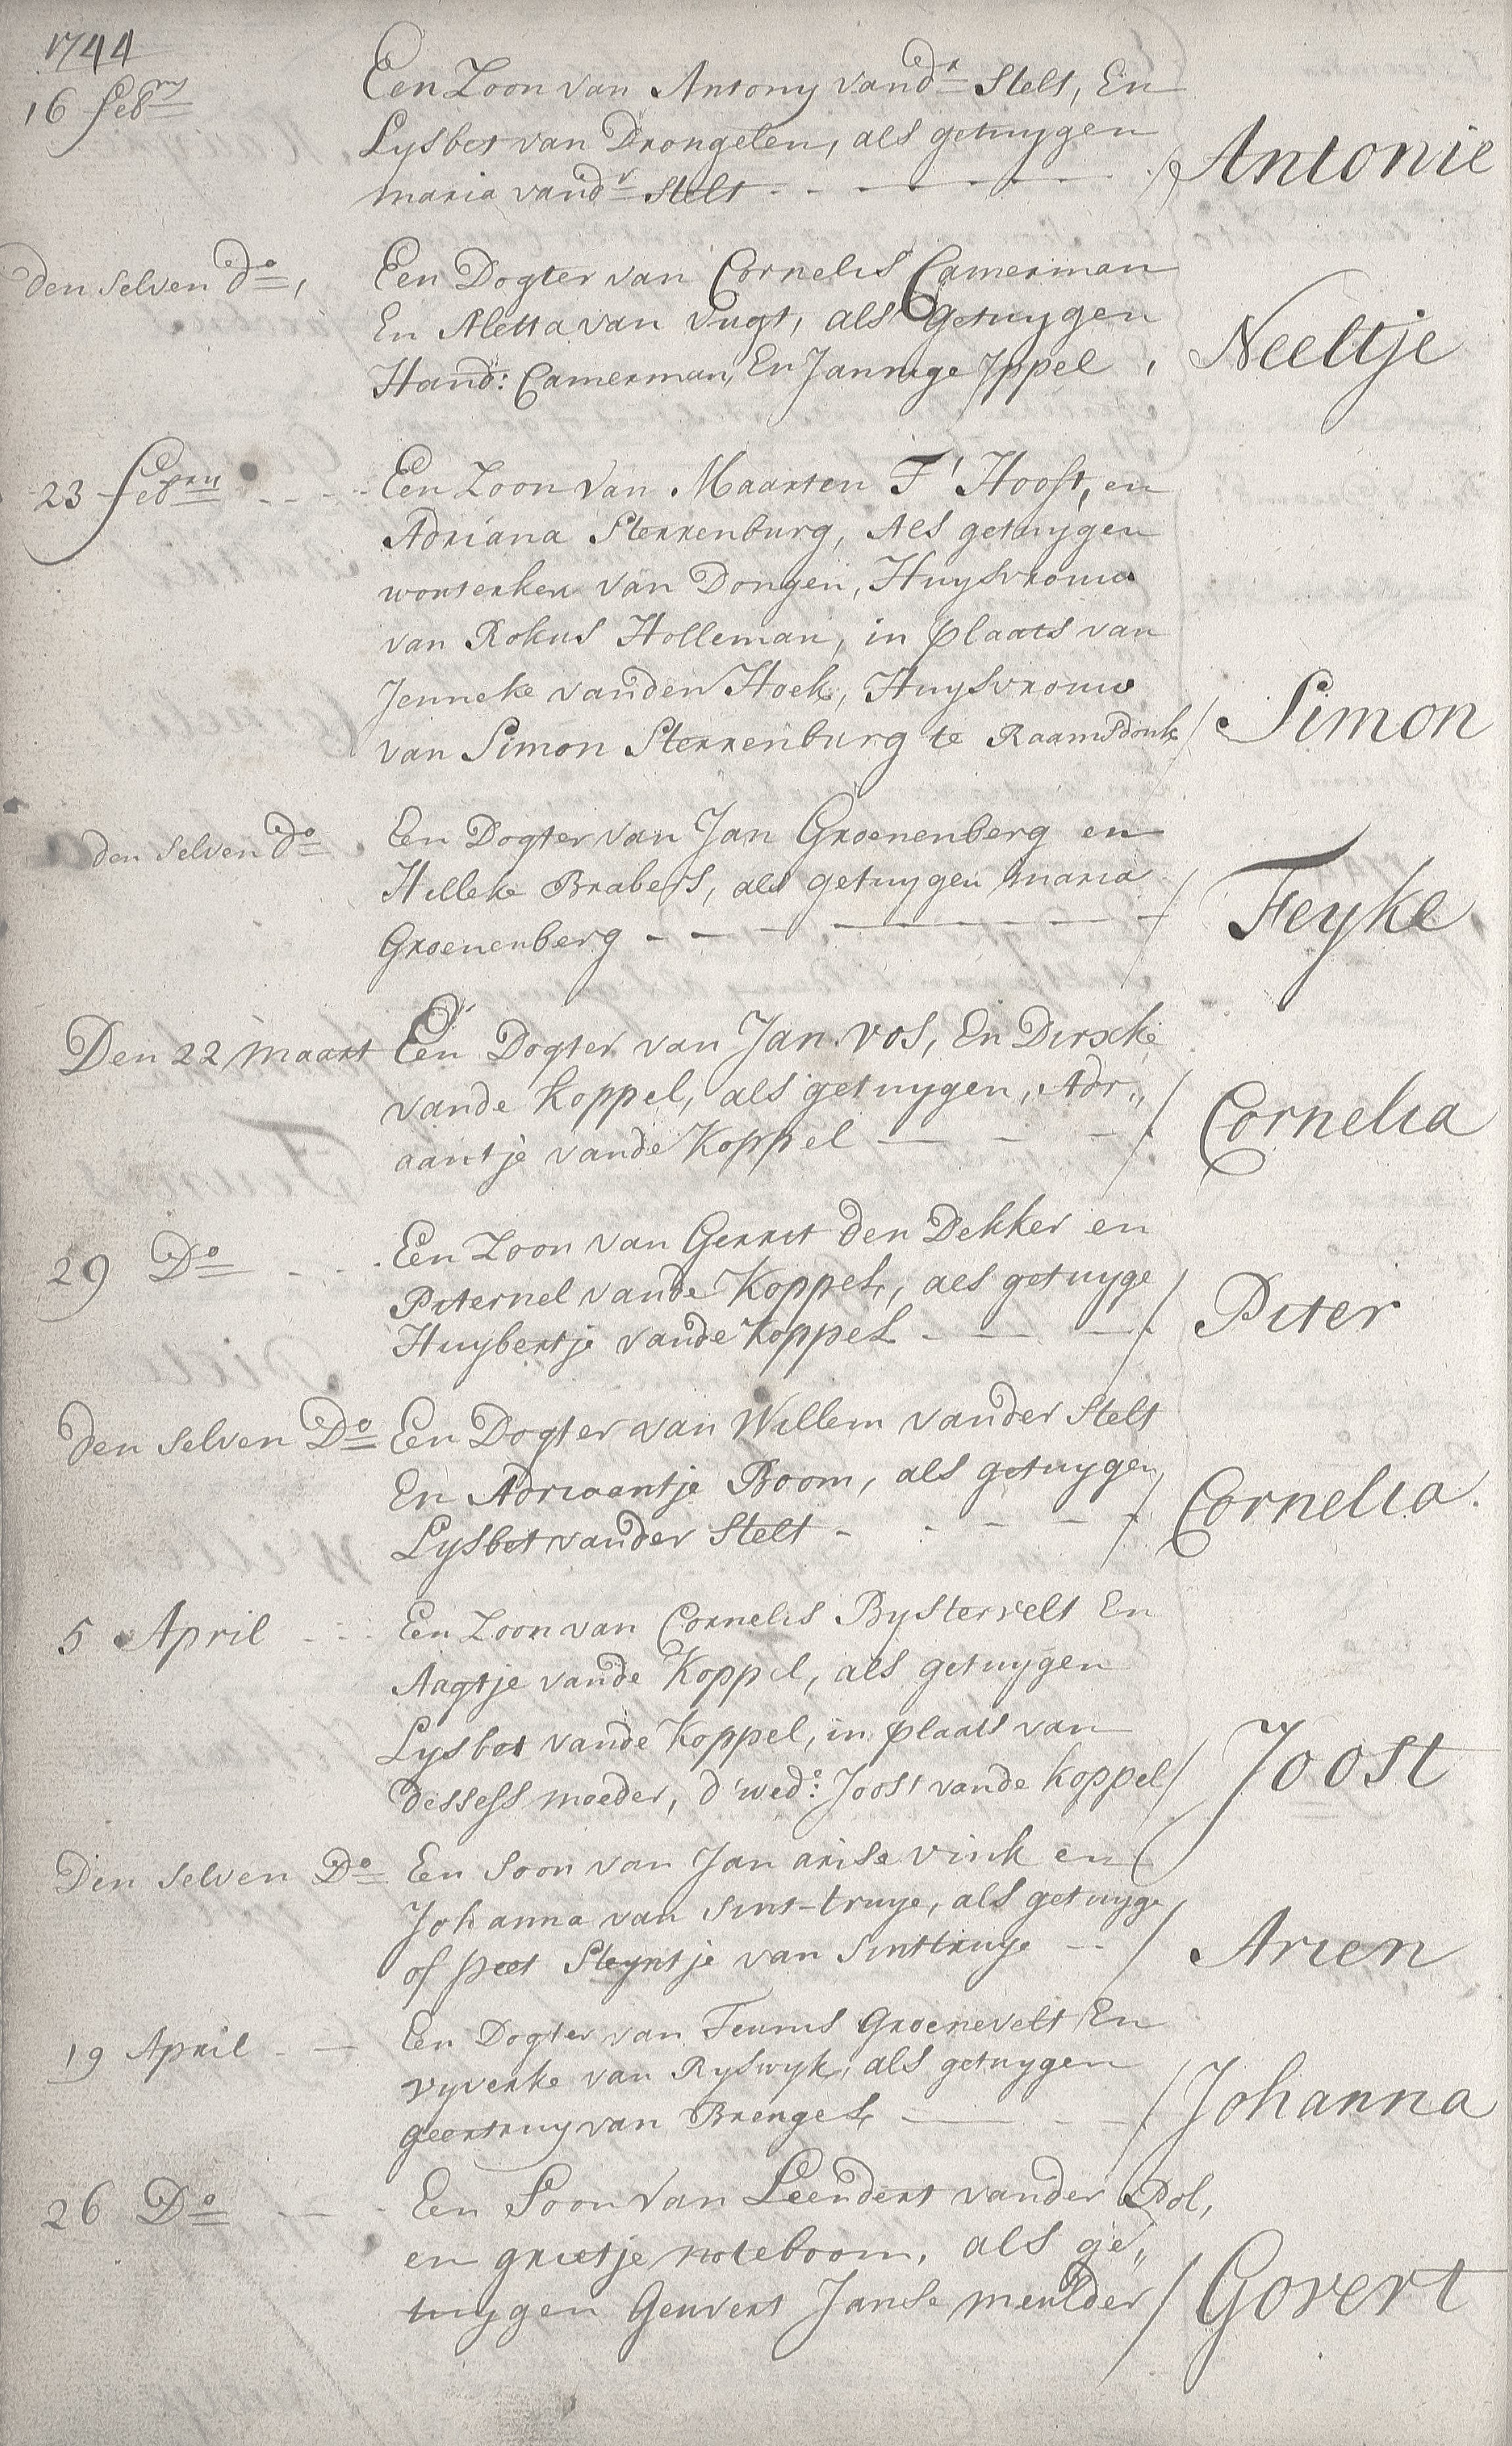 1744
16 febry
Een Zoon van Antony vandr Stelt, En
Lysbet van Drongelen, als getuygen
maria vandr Stelt
Antonie
den selven do,
Een Dogter van Cornelis Camerman
En Aletta van Vugt, als getuygen
Hand: Camerman, En Jannige Ippel,
Neeltje
23 febru
Een Zoon van Maarten T' Hooft, en
Adriana Sterrenburg, Als getuygen
wouterken van Dongen, Huysvrouw
van Rokus Holleman, in plaats van
Jenneke vanden Hoek, Huysvrouw
van Simon Sterrenburg te Raamsdonk
Simon
den selven do
Een Dogter van Jan Groenenberg en
Hilleke Brabers, als getuygen maria
Groenenberg
Feyke
Den 22 maart
Een Dogter van Jan vos, En Dirxke
vande Koppel, als getuygen, Adr,,
aantje vande Koppel
Cornelia
29 Do
Een Zoon van Gerrit den Dekker en
Piternel vande Koppel, als getuyge
Huybertje vande Koppel
Piter
den selven Do
Een Dogter van Willem vander Stelt
En Adriaantje Boom, als getuygen,
Lysbet vander Stelt
Cornelia.
5 April
Een Zoon van Cornelis Bystervelt En
Aagtje vande Koppel, als getuygen
Lysbet vande Koppel, in plaats van
dessefs moeder, d'wede: Joost vande Koppel
Joost
Den selven Do
Een Soon van Jan arise vink en
Johanna van Sint-truye, als getuyge
of peet Steyntje van Sinttruye
Arien
19 April
Een Dogter van Teunis Groenevelt En
vyverke van Ryswyk, als getuygen
geertruy van Brengel
Johanna
26 Do
Een Soon van Leendert vander Pol,
en grietje noteboom, als ge,,
tuygen Geuvert Janse meulder
Govert